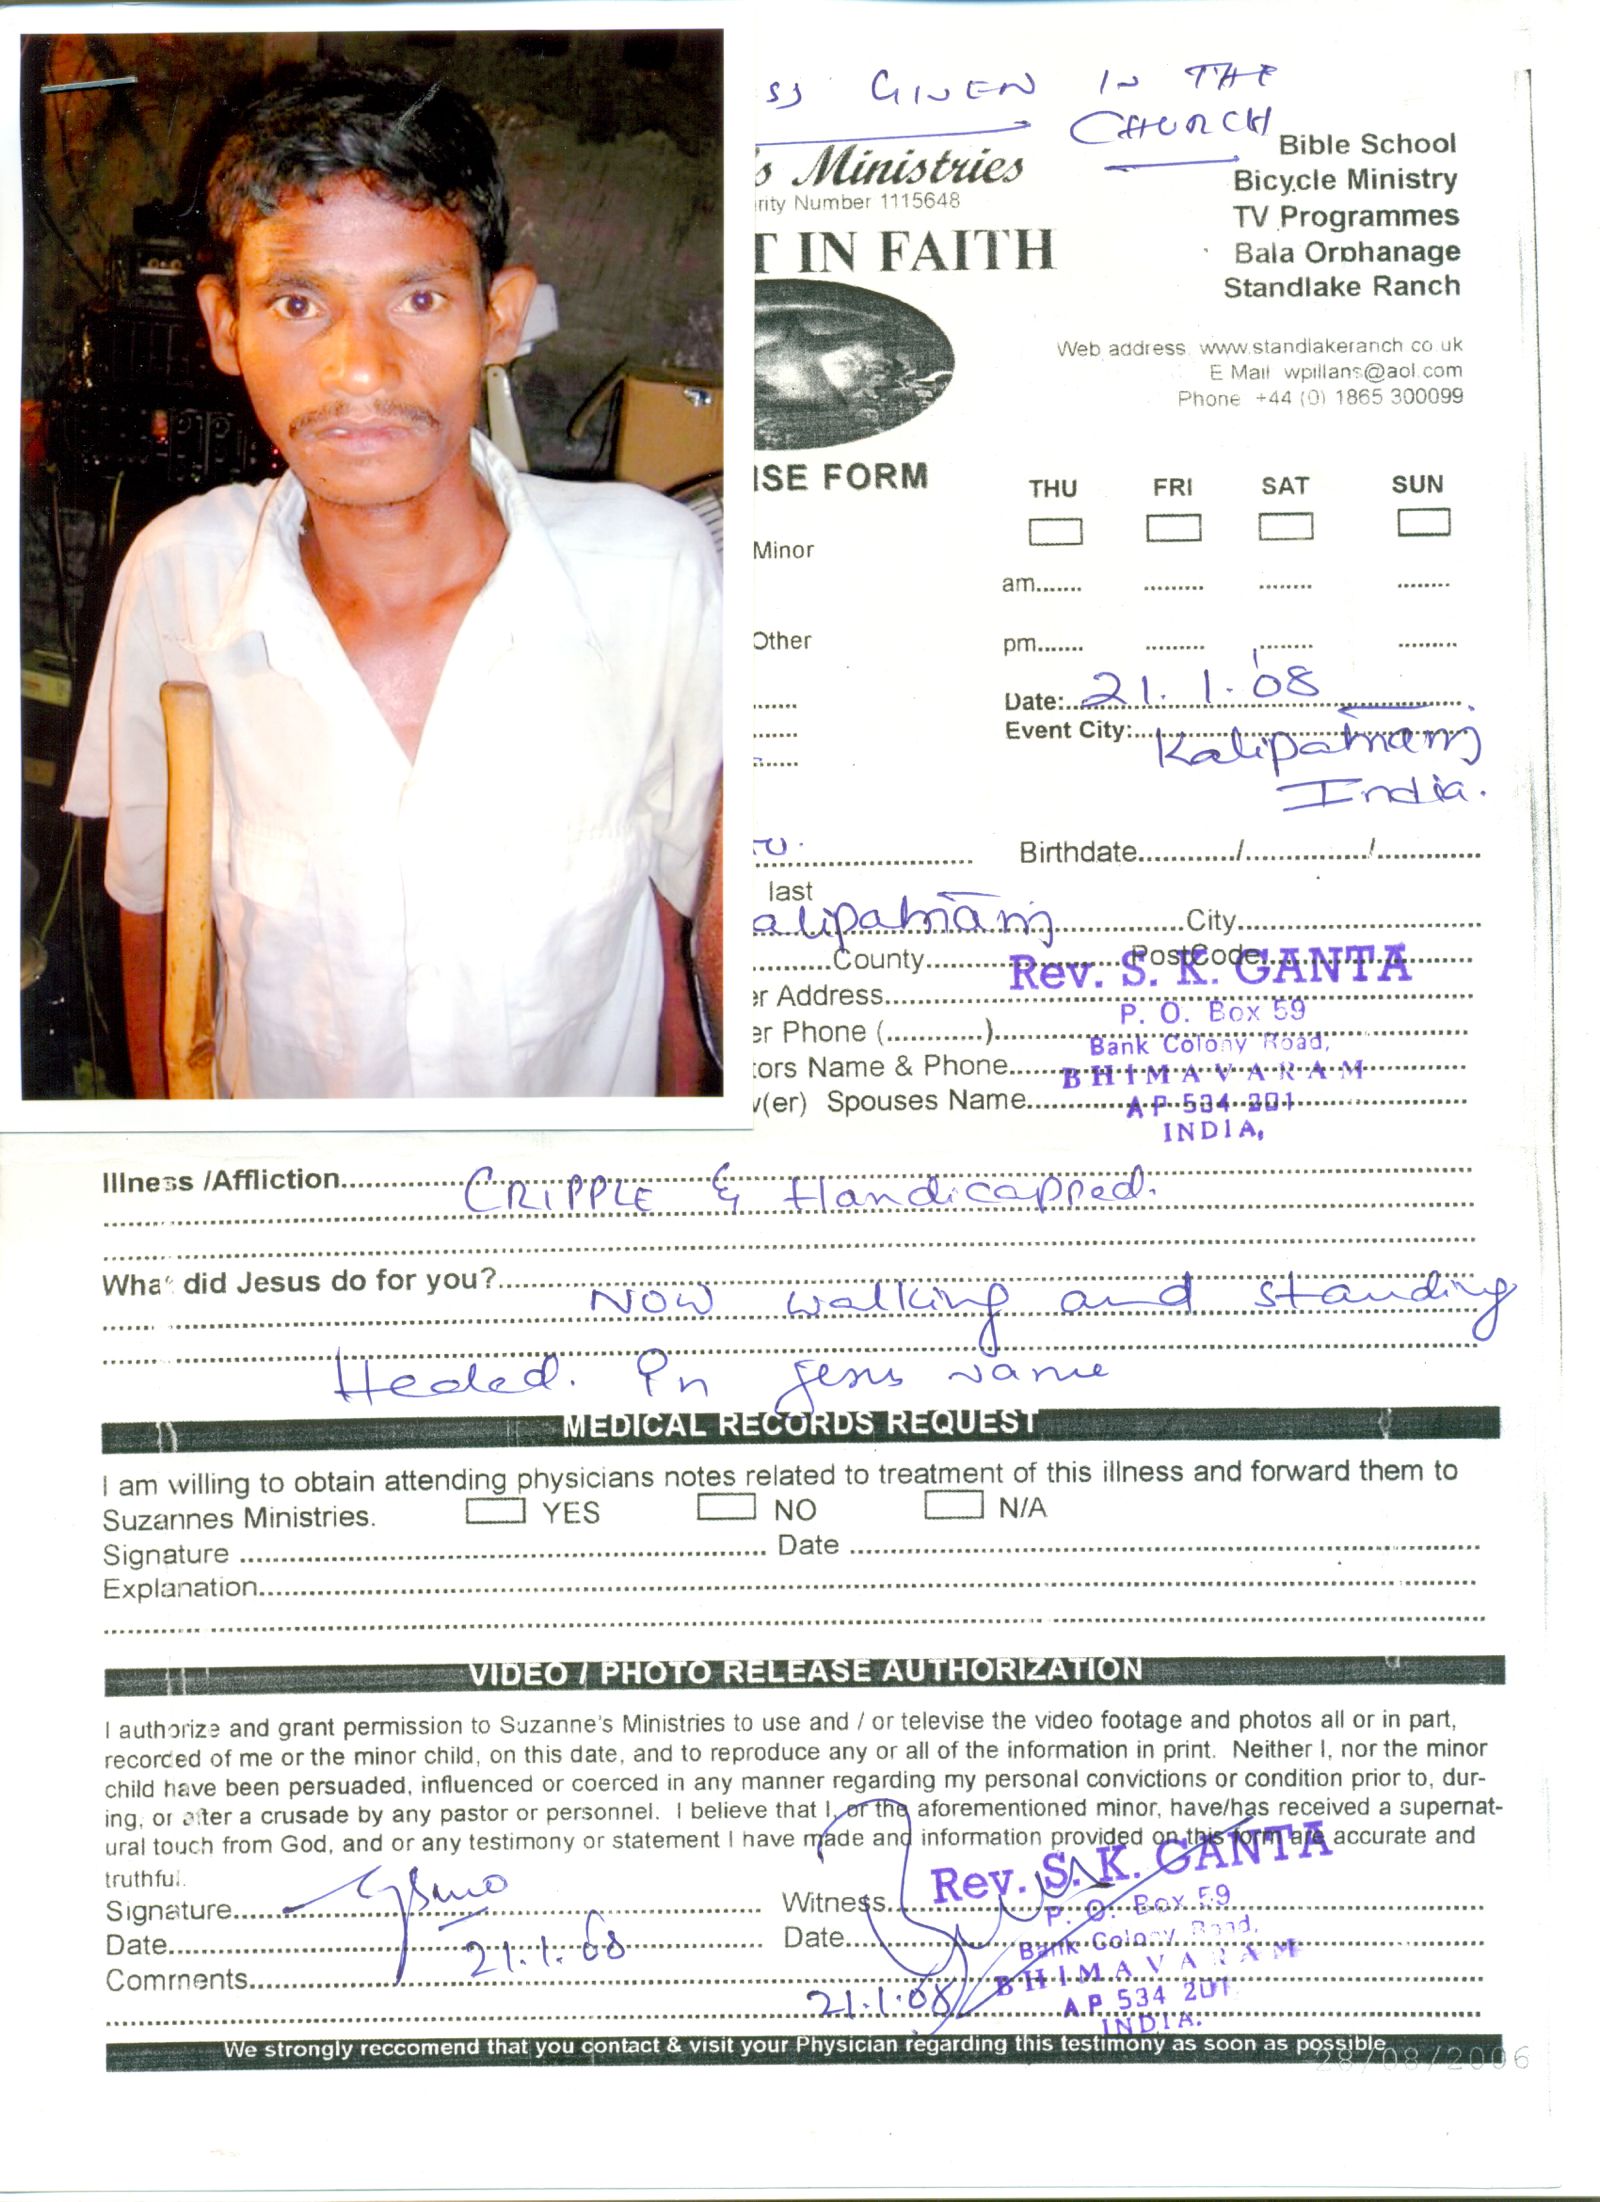 SS GIVEN IN THE
CHURCH
's Ministries
rity Number 1115648
T IN FAITH
Bible School
Bicycle Ministry
TV Programmes
Bala Orphanage
Standlake Ranch
Web address www.standlakeranch.co.uk
E Mail wpillans@aol.com
Phone +44 (0) 1865 300099
ISE FORM
THU FRI SAT SUN
Minor
am....... ......... ........ ........
Other
pm....... ......... ........ .........
Date: 21.1.'08
Event City: Kalipatnam
India.
Birthdate............/.............../..............
last
alipatnam City
County PostCode
Rev. S. K. GANTA
P. O. Box 59
Bank Colony Road,
BHIMAVARAM
AP 534 201
INDIA,
er Address
er Phone (............)
tors Name & Phone
v(er) Spouses Name
Illness /Affliction CRIPPLE & Handicapped.
What did Jesus do for you? NOW walking and standing
Healed. In Jesus Name
MEDICAL RECORDS REQUEST
I am willing to obtain attending physicians notes related to treatment of this illness and forward them to
Suzannes Ministries. YES NO N/A
Signature Date
Explanation
VIDEO / PHOTO RELEASE AUTHORIZATION
I authorize and grant permission to Suzanne's Ministries to use and / or televise the video footage and photos all or in part,
recorded of me or the minor child, on this date, and to reproduce any or all of the information in print. Neither I, nor the minor
child have been persuaded, influenced or coerced in any manner regarding my personal convictions or condition prior to, dur-
ing, or after a crusade by any pastor or personnel. I believe that I, or the aforementioned minor, have/has received a supernat-
ural touch from God, and or any testimony or statement I have made and information provided on this form are accurate and
truthful.
Signature Witness
Date 21.1.08 Date 21.1.08
Comments
Rev. S. K. GANTA
P. O. Box 59
Bank Colony Road,
BHIMAVARAM
AP 534 201
INDIA.
We strongly reccomend that you contact & visit your Physician regarding this testimony as soon as possible
28/08/2006